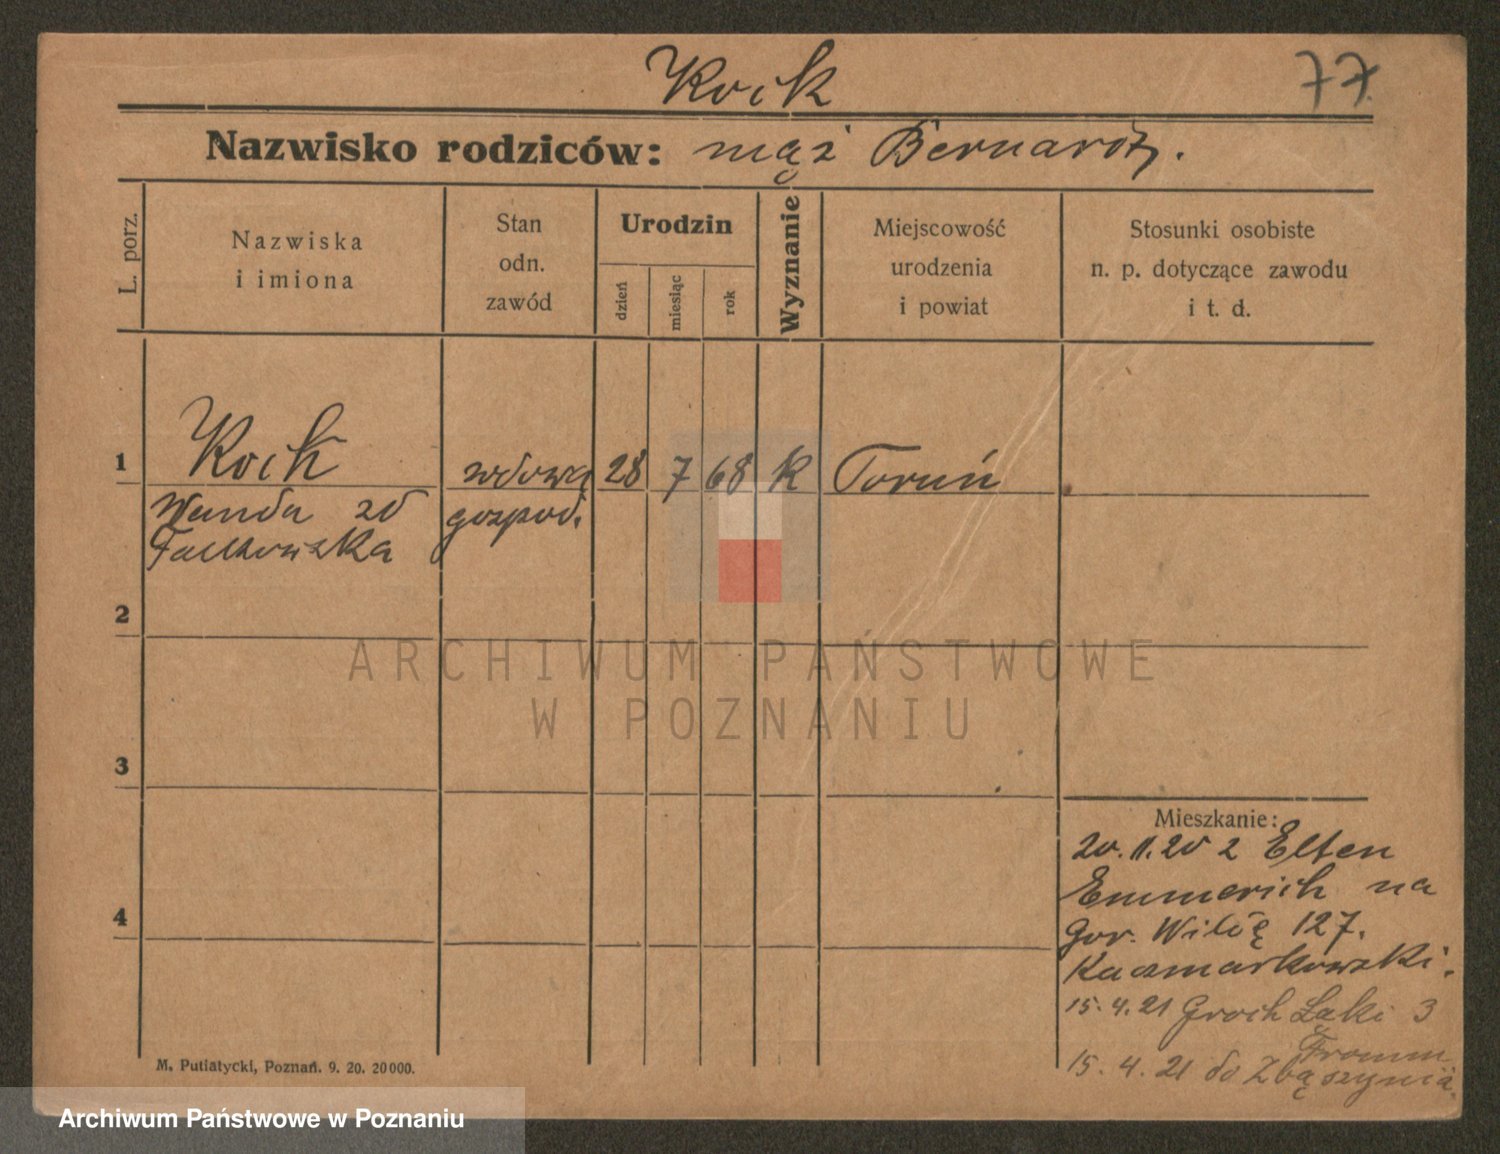 Koch
77
Nazwisko rodziców: mąż Bernard.
L. porz.
Nazwiska
i imiona
Stan
odn.
zawód
Urodzin
dzień
miesiąc
rok
Wyznanie
Miejscowość
urodzenia
i powiat
Stosunki osobiste
n. p. dotyczące zawodu
i t. d.
1
Koch
wdowa
28
7
68
K
Toruń
Wanda zd
gospod.
2
ARCHIWUM PAŃSTWOWE
W POZNANIU
3
Mieszkanie:
20.11.20 z Elten
Emmerich na
Gór. Wildę 127.
Kaczmarkowski.
4
15.4.21 Groch Łąki 3
Fromm
15.4.21 do Zbąszynia.
M. Putiatycki, Poznań. 9. 20. 20000.
Archiwum Państwowe w Poznaniu